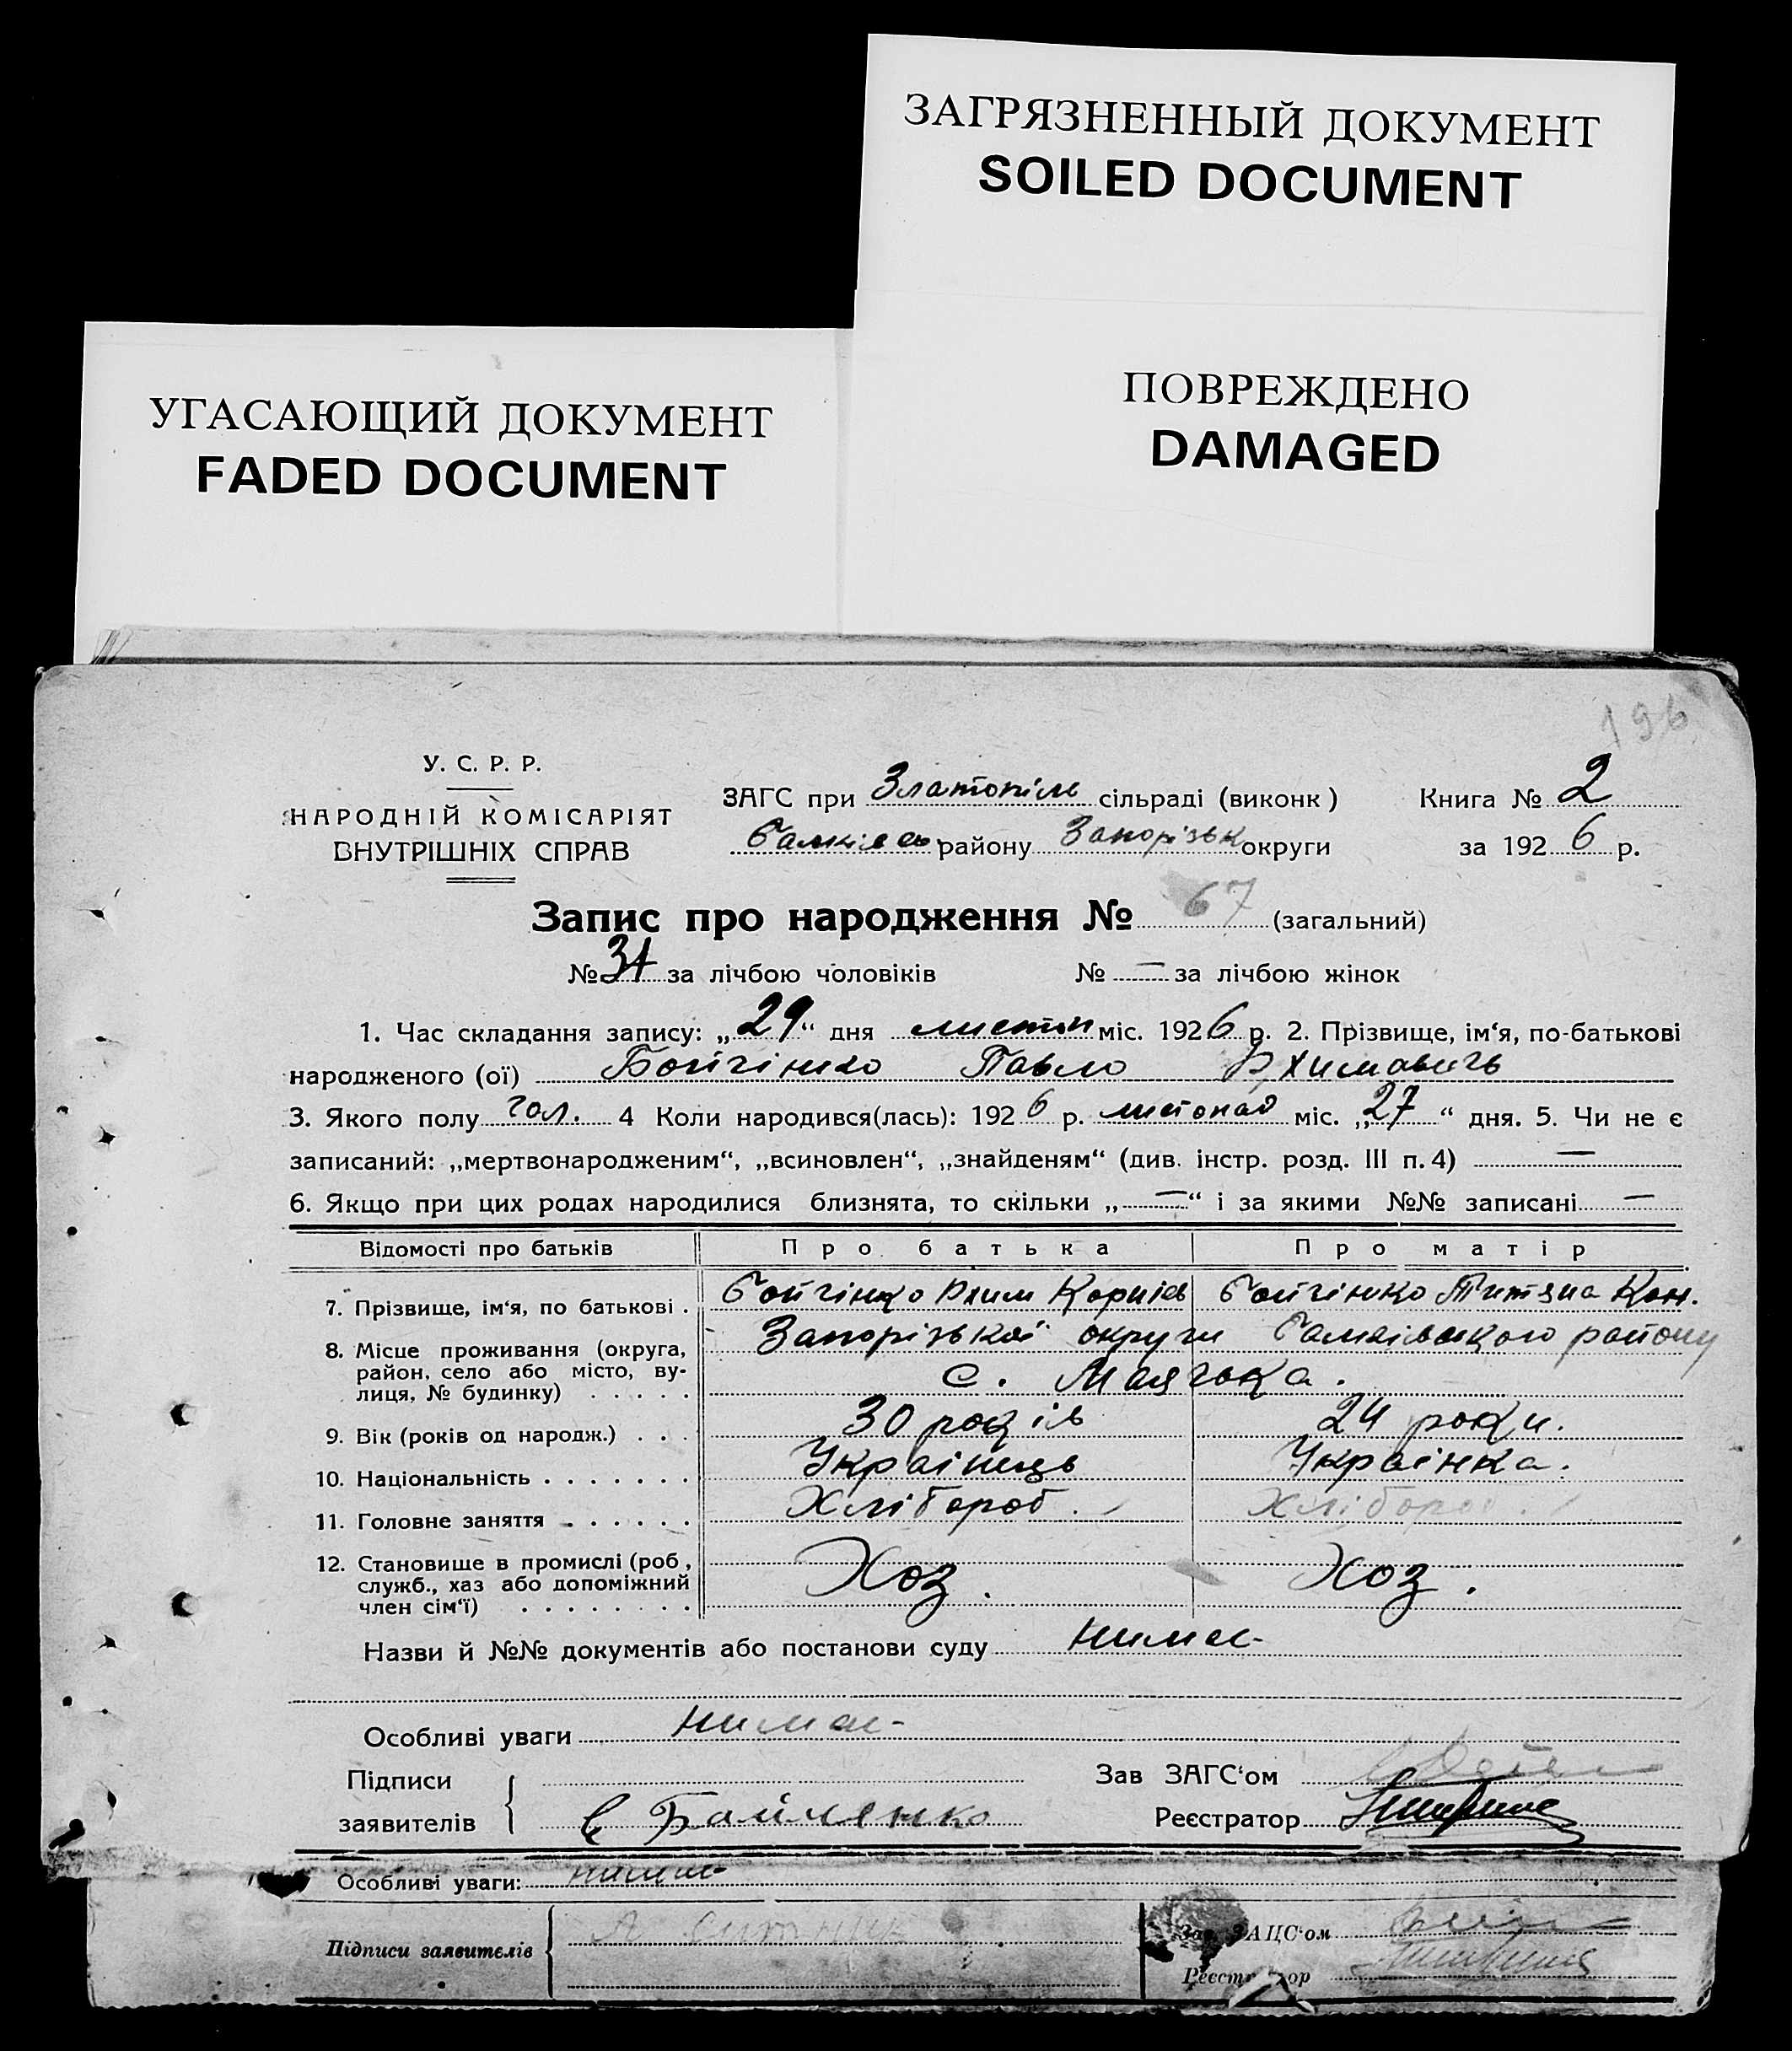 ЗАГРЯЗНЕННЫЙ ДОКУМЕНТ
SOILED DOCUMENT
УГАСАЮЩИЙ ДОКУМЕНТ
FADED DOCUMENT
ПОВРЕЖДЕНО
DAMAGED
196
У. С. Р. Р.
НАРОДНІЙ КОМІСАРІЯТ
ВНУТРІШНІХ СПРАВ
ЗАГС при Златопіль сільраді (виконк) Книга № 2
району Запорізьк округи за 1926 р.
Запис про народження № 67 (загальний)
№ 31 за лічбою чоловіків № — за лічбою жінок
1. Час складання запису: „29“ дня листоп міс. 1926 р. 2. Прізвище, ім‘я, по-батькові
народженого (ої) Бойчінко Павло Яхимавичь
3. Якого полу чол. 4 Коли народився(лась): 1926 р. листопад міс. „27“ дня. 5. Чи не є
записаний: „мертвонародженим“, „всиновлен“, „знайденям“ (див. інстр. розд. III п. 4) —
6. Якщо при цих родах народилися близнята, то скільки „—“ і за якими №№ записані —
Відомості про батьків Про батька Про матір
7. Прізвище, ім‘я, по батькові . Бойчінко Яхим Корнієв Бойчінко Титяна Кон.
8. Місце проживання (округа, район, село або місто, вулиця, № будинку) . . . . . Запорізької округи району
с. Маячька.
9. Вік (років од народж.) . . . 30 років 24 роки.
10. Національність . . . . . . . Українець Українка.
11. Головне заняття . . . . . . Хлібороб. Хлібороб.
12. Становище в промислі (роб, служб., хаз або допоміжний член сім‘ї) . . . . . . . . Хоз. Хоз.
Назви й №№ документів або постанови суду нимає-
Особливі уваги нимає-
Підписи
заявителів
Бойченко
Зав ЗАГС‘ом
Реєстратор
Особливі уваги: нимає-
Підписи заявителів
А Ситник
Зав. ЗАЦС‘ом
Реєстратор